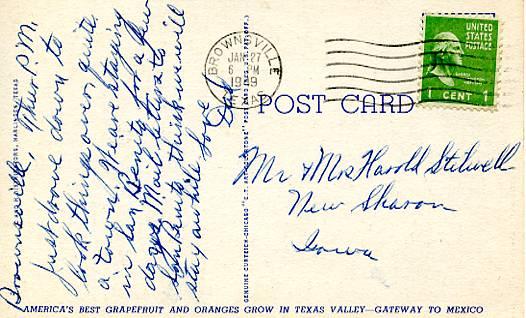 Brownsville, Thur P.M.
Just drove down to
look things over, quite
a town. We are staying
in San Benito for a few
days. Mail letters to
San Benito think we will
stay awhile love
Dad
BROWNSVILLE
JAN 27
6 PM
19 9
TEXAS
UNITED
STATES
POSTAGE
1 CENT 1
POST CARD
Mr & Mrs Harold Stilwell
New Sharon
Iowa
GENUINE CURTEICH-CHICAGO "C.T. ART-COLORTONE" POST CARD
HARLINGEN, TEXAS
AMERICA'S BEST GRAPEFRUIT AND ORANGES GROW IN TEXAS VALLEY—GATEWAY TO MEXICO